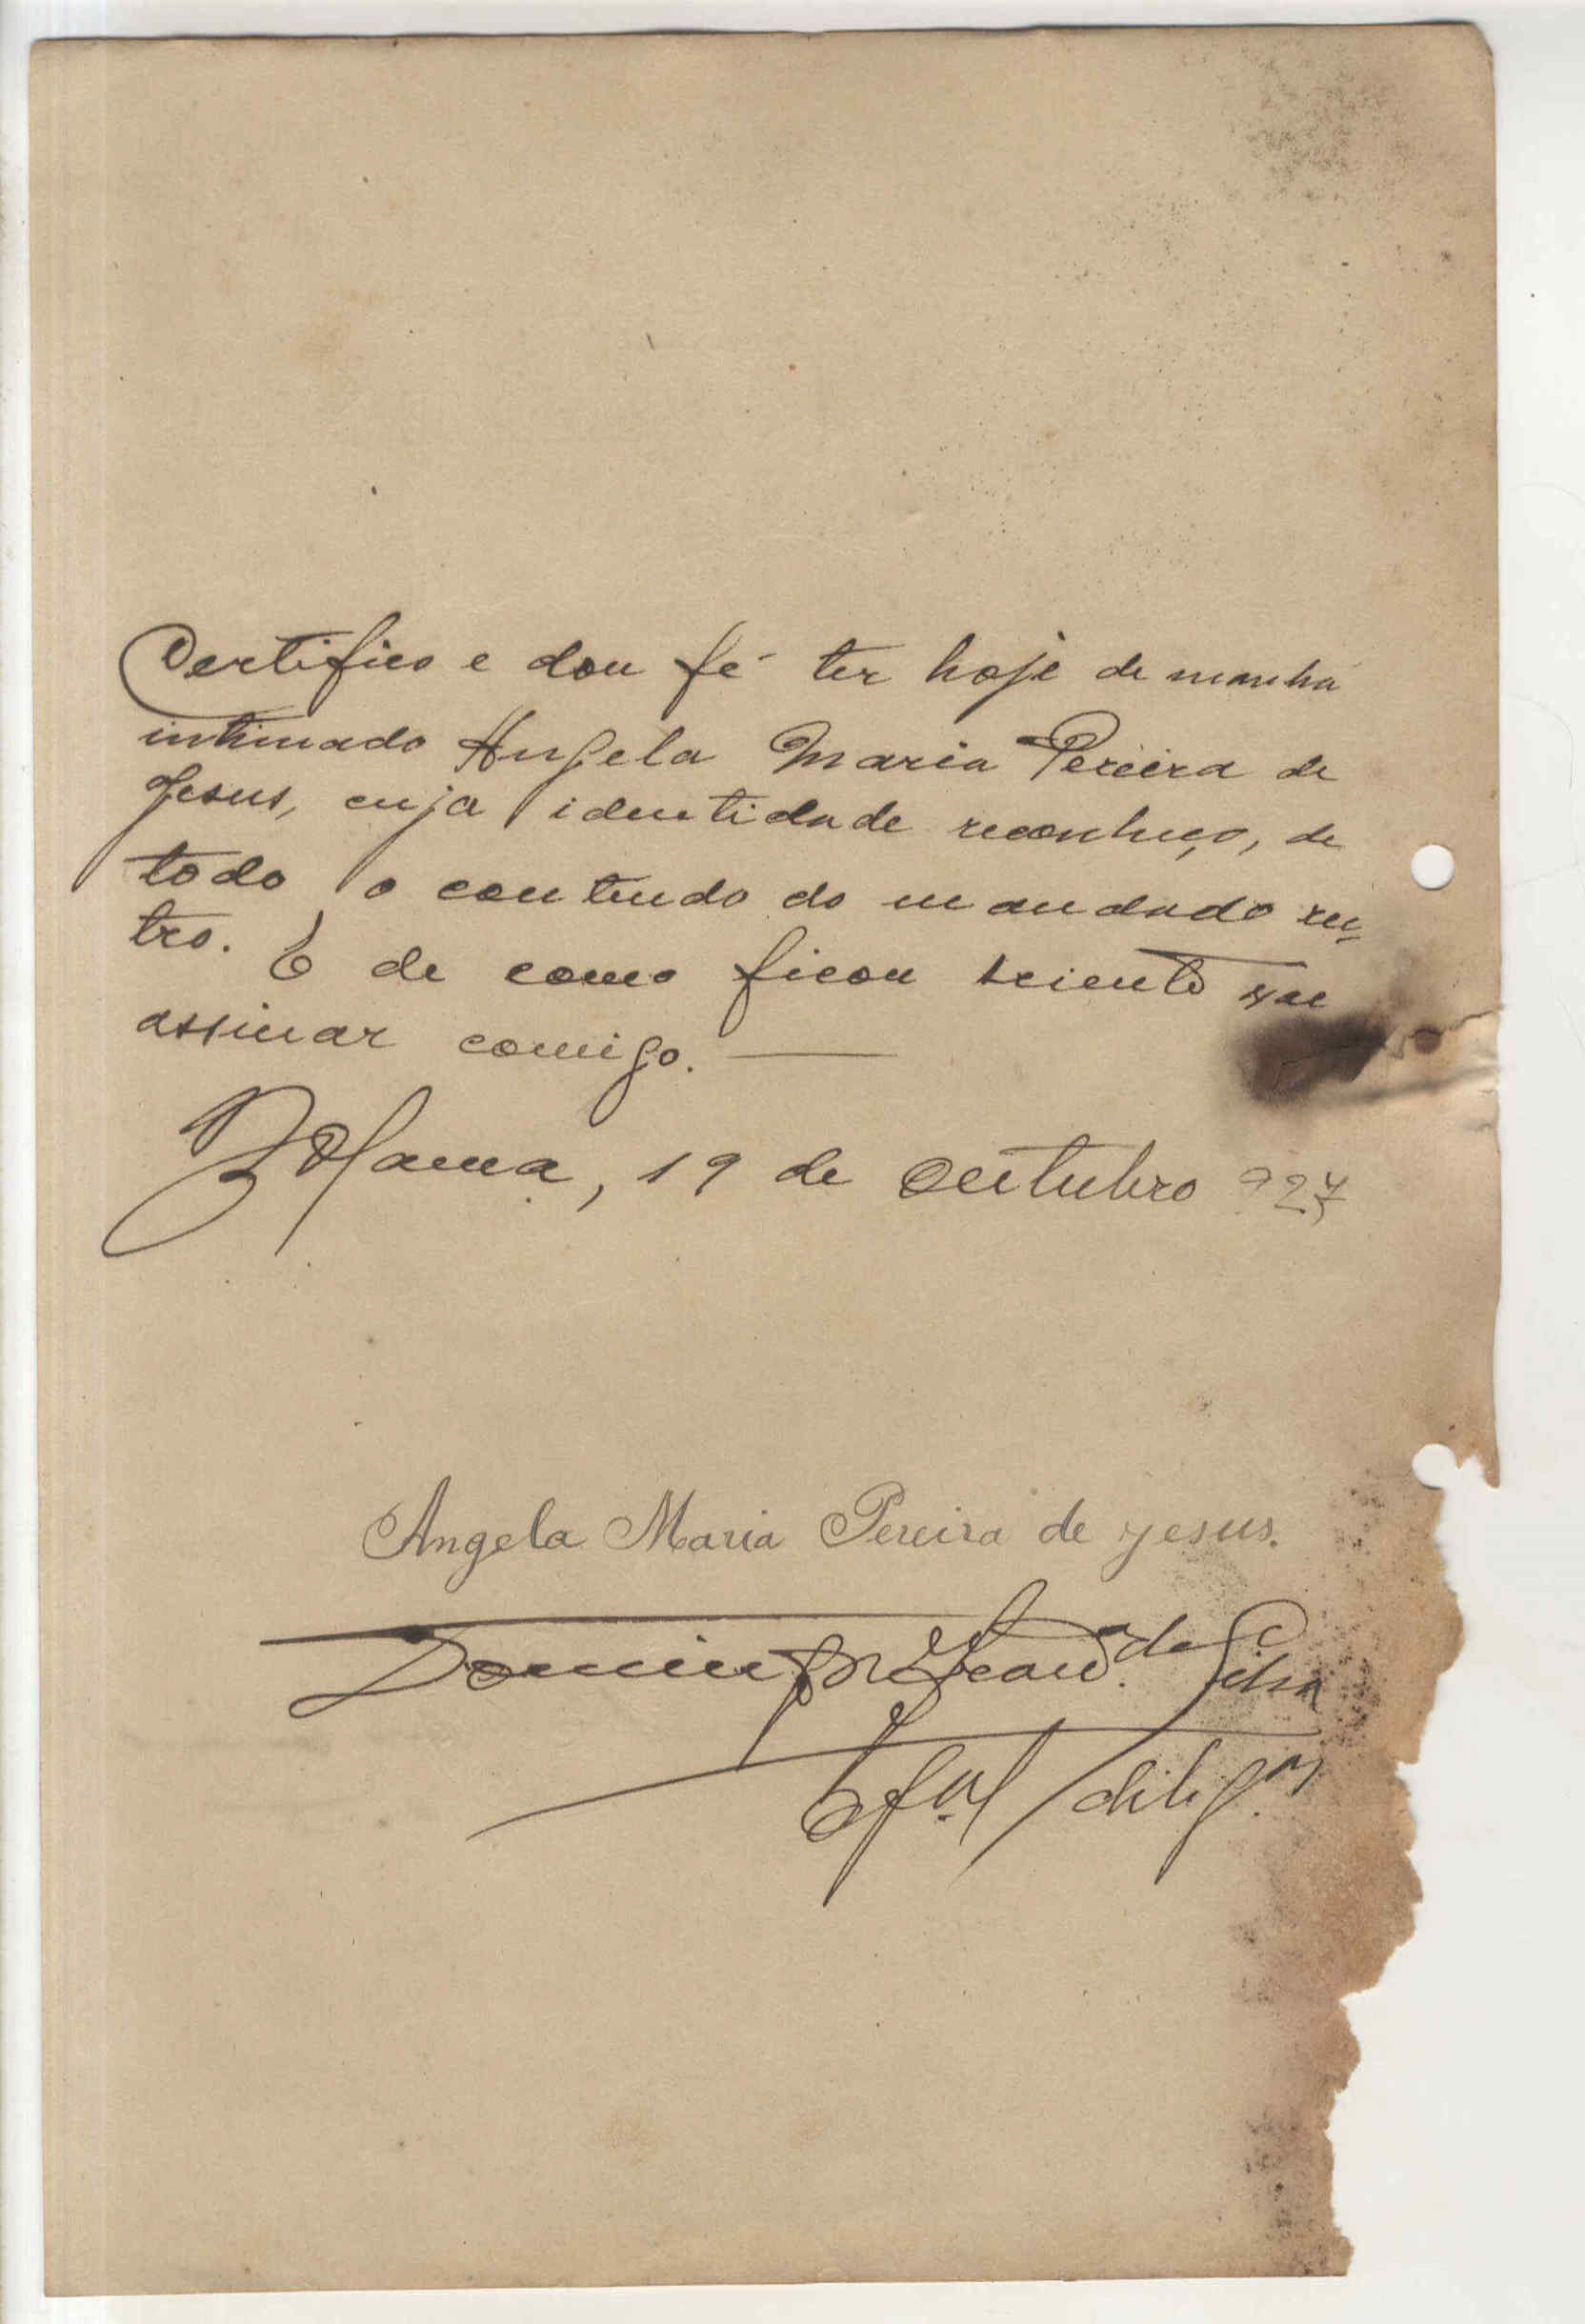 Certifico e dou fé ter hoje de manhã
intimado Angela Maria Pereira de
Jesus, cuja identidade reconheço, de
todo o conteudo do mandado re-
tro. E de como ficou sciente vae
assinar comigo. —
Bolama, 19 de Outubro 927
Angela Maria Pereira de yesus.
Domingos da Silva
Of.al dilig.as